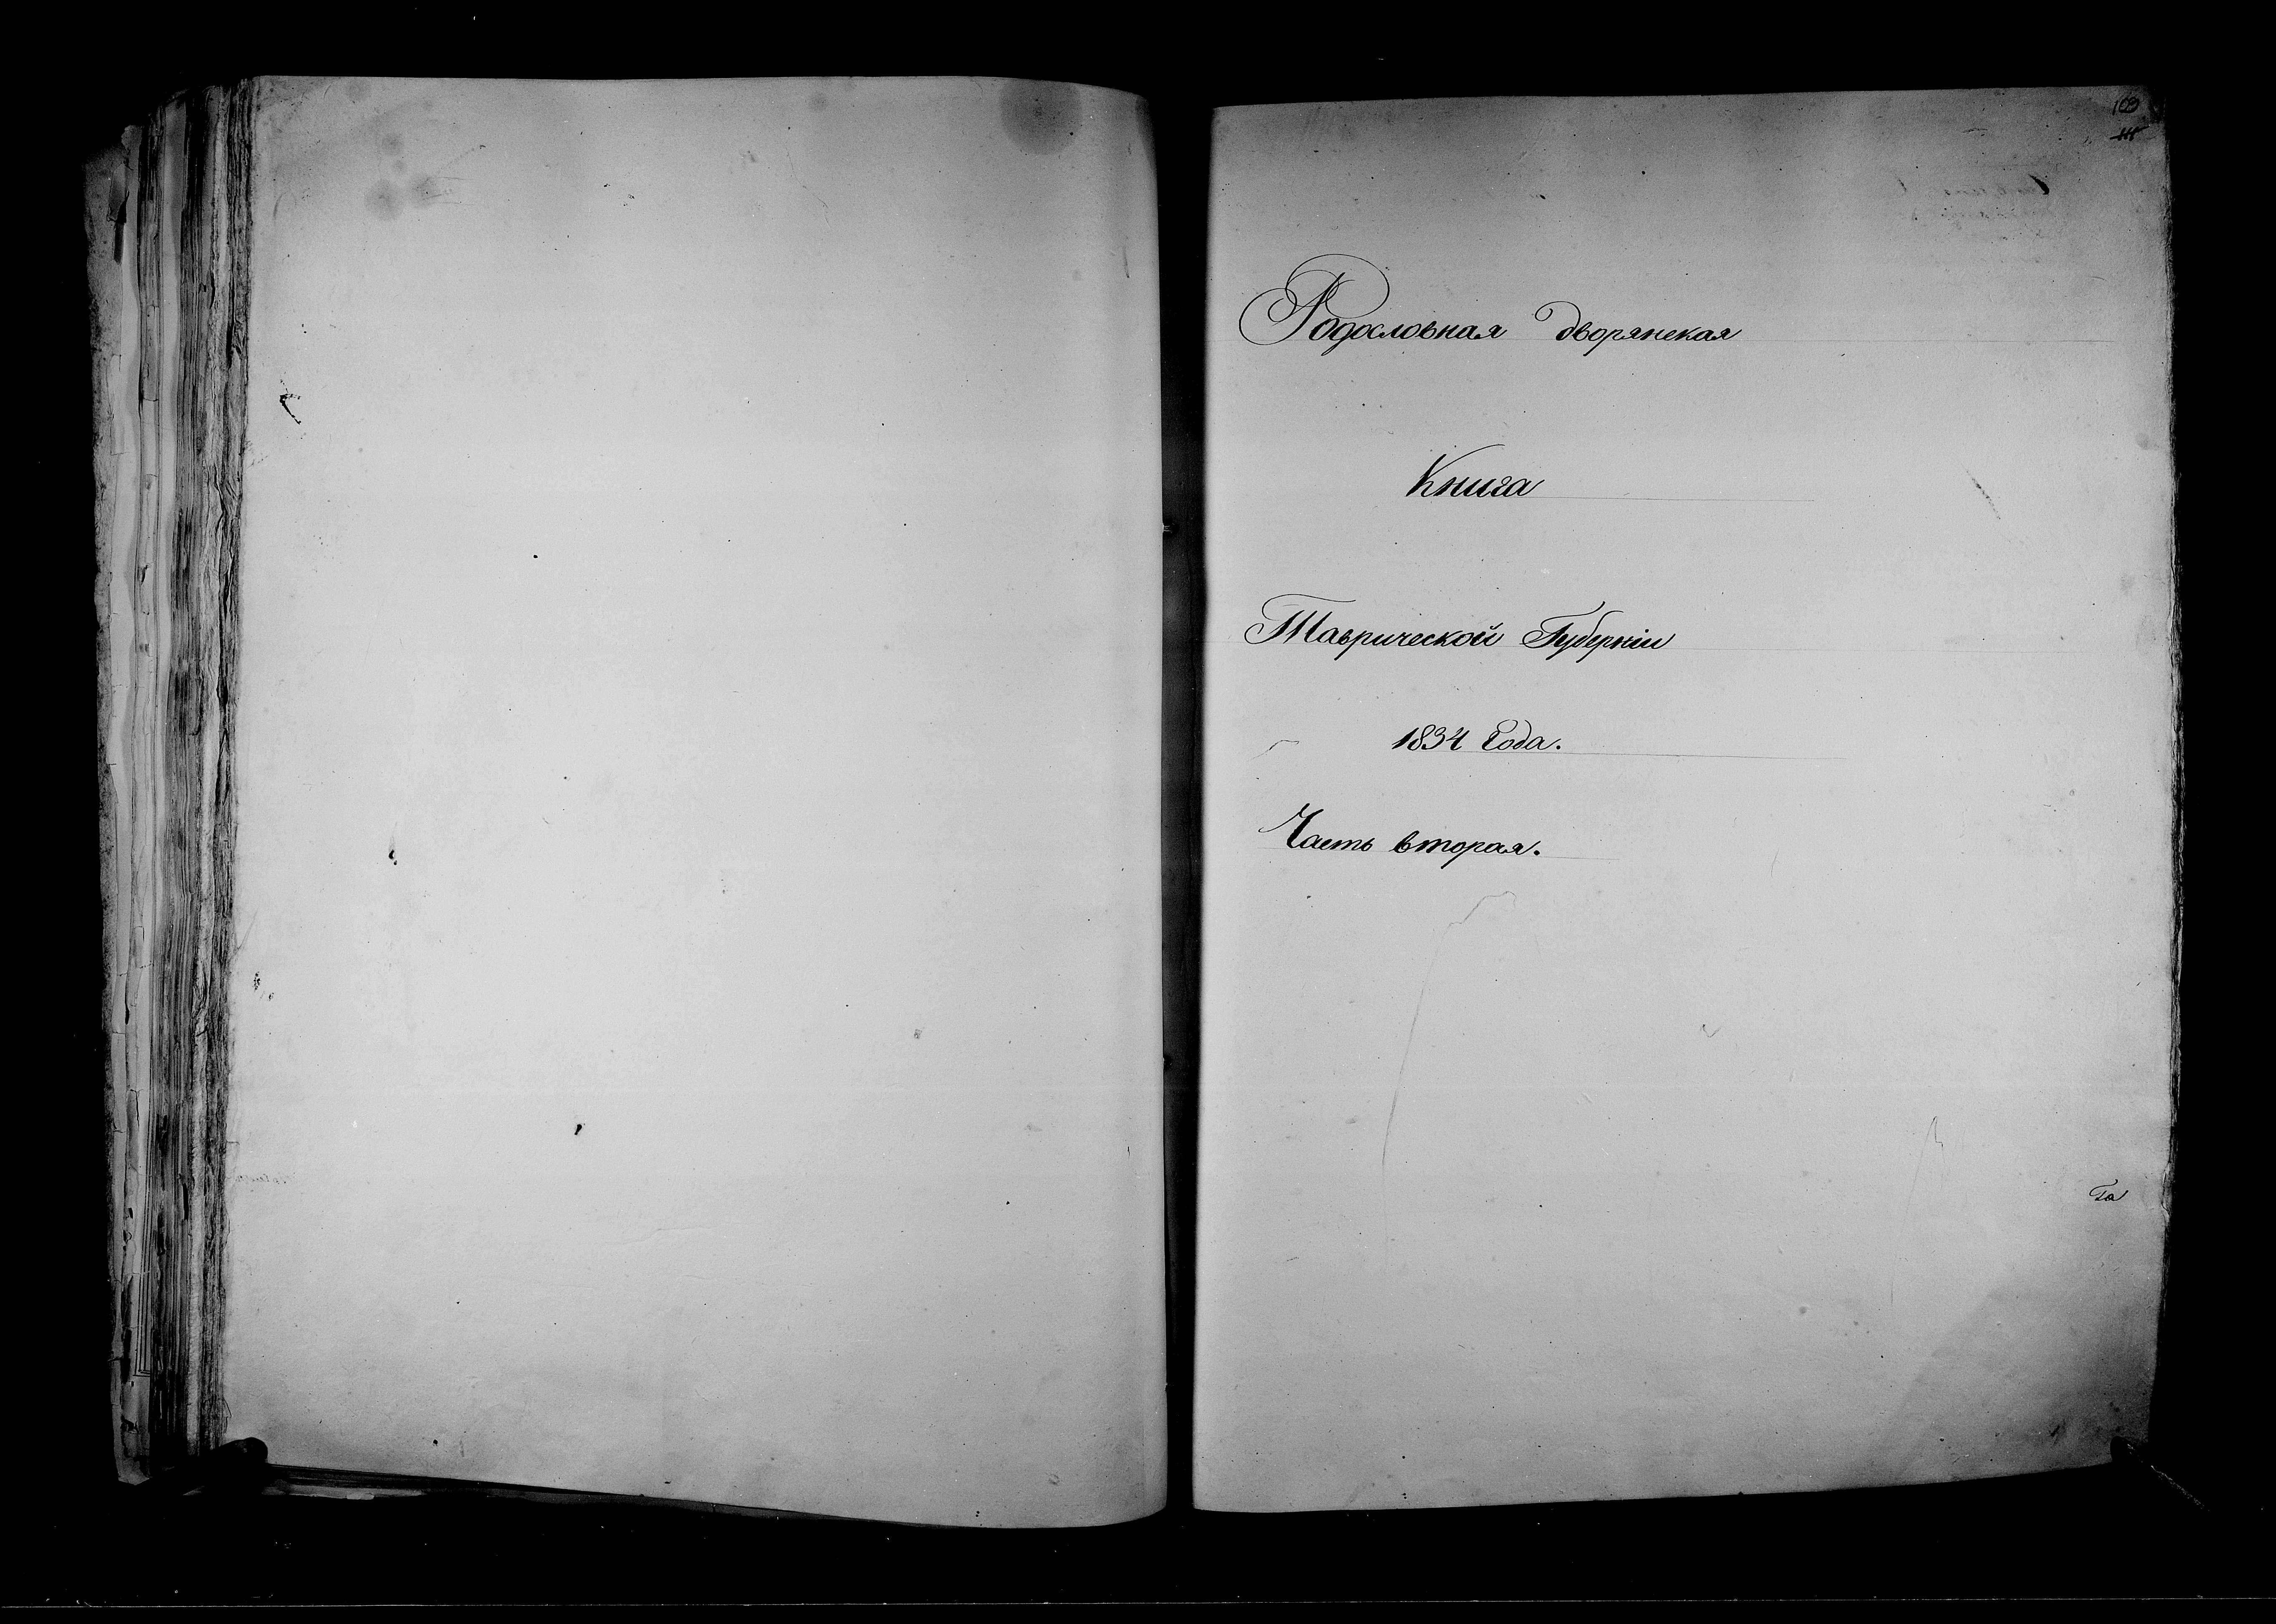 103
Родословная дворянская
Книга
Таврической Губерніи
1834 Года.
Часть вторая.
Га